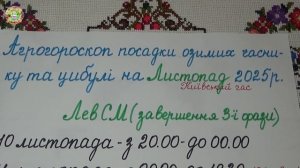 Агрогороскоп посадки озимих часни-
ку та цибулі на Листопад 2025р.
Київський час
Лев СМ (завершення 3-ї фази)
10 листопада - з 20.00 - до 00.00